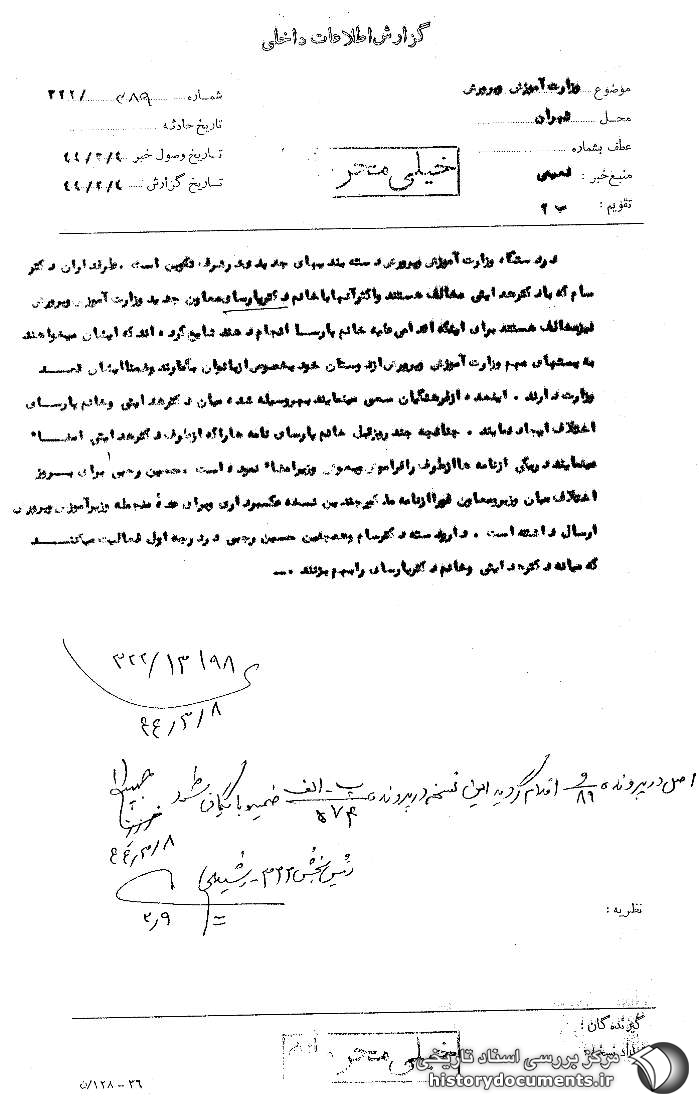 گزارش اطلاعات داخلی
موضوع وزارت آموزش وپرورش
محل تهران
عطف بشماره
منبع خبر :
تقویم : ب ۲
شماره ۳۸۹ / ۳۲۲
تاریخ حادثه
تاریخ وصول خبر ۴۴/۳/۴
تاریخ گزارش ۴۴/۳/۴
خیلی محر
درد ستگاه وزارت آموزش وپرورش دسته بندیهای جدیدی درشرف تکوین است . طرفداران دکتر
سام که بادکترهدایتی مخالف هستند واکثرآنهاباخانم دکترپارسای معاون جدید وزارت آموزش وپرورش
نیزمخالف هستند برای اینکه اقدامی علیه خانم پارسا انجام دهند شایع کرده اند که ایشان میخواهند
به پستهای مهم وزارت آموزش وپرورش ازدوستان خود بخصوص ازبانوان بگمارند وضمنا ایشان قصد
وزارت دارند . اینعده ازفرهنگیان سعی مینمایند بهروسیله شده میان دکترهدایتی وخانم پارسای
اختلاف ایجاد نمایند . چنانچه چند روزقبل خانم پارسای نامه هاراکه ازطرف دکترهدایتی امضاء
مینمایند دریکی ازنامه ها ازطرف رافراموش وبعوض وزیرامضاء نموده است . حسین رجبی برای بروز
اختلاف میان وزیرومعاون فورا ازنامه مذکورچندین نسخه عکسبرداری وبرای عدهٔ منجمله وزیرآموزش وپرورش
ارسال داشته است . دارودسته دکترسام وهمچنین حسین رجبی درد رجه اول فعالیت میکنند
که میانه دکترهدایتی وخانم دکترپارسای رابهم بزنند .
۳۲۲/۱۳۱۹۸
۴۴/۳/۸
اصل در پرونده و/۸۹ اقدام گردید این نسخه در پرونده ب - الف/۵۷۴ ضمیمه بایگانی شود
۴۴/۳/۸
رئیس بخش ۳۲۲ -
۳/۹
نظریه :
گیرندگان :
خیلی محر
۳۶ - ۱۲۸/ن
مرکز بررسی اسناد تاریخی
historydocuments.ir